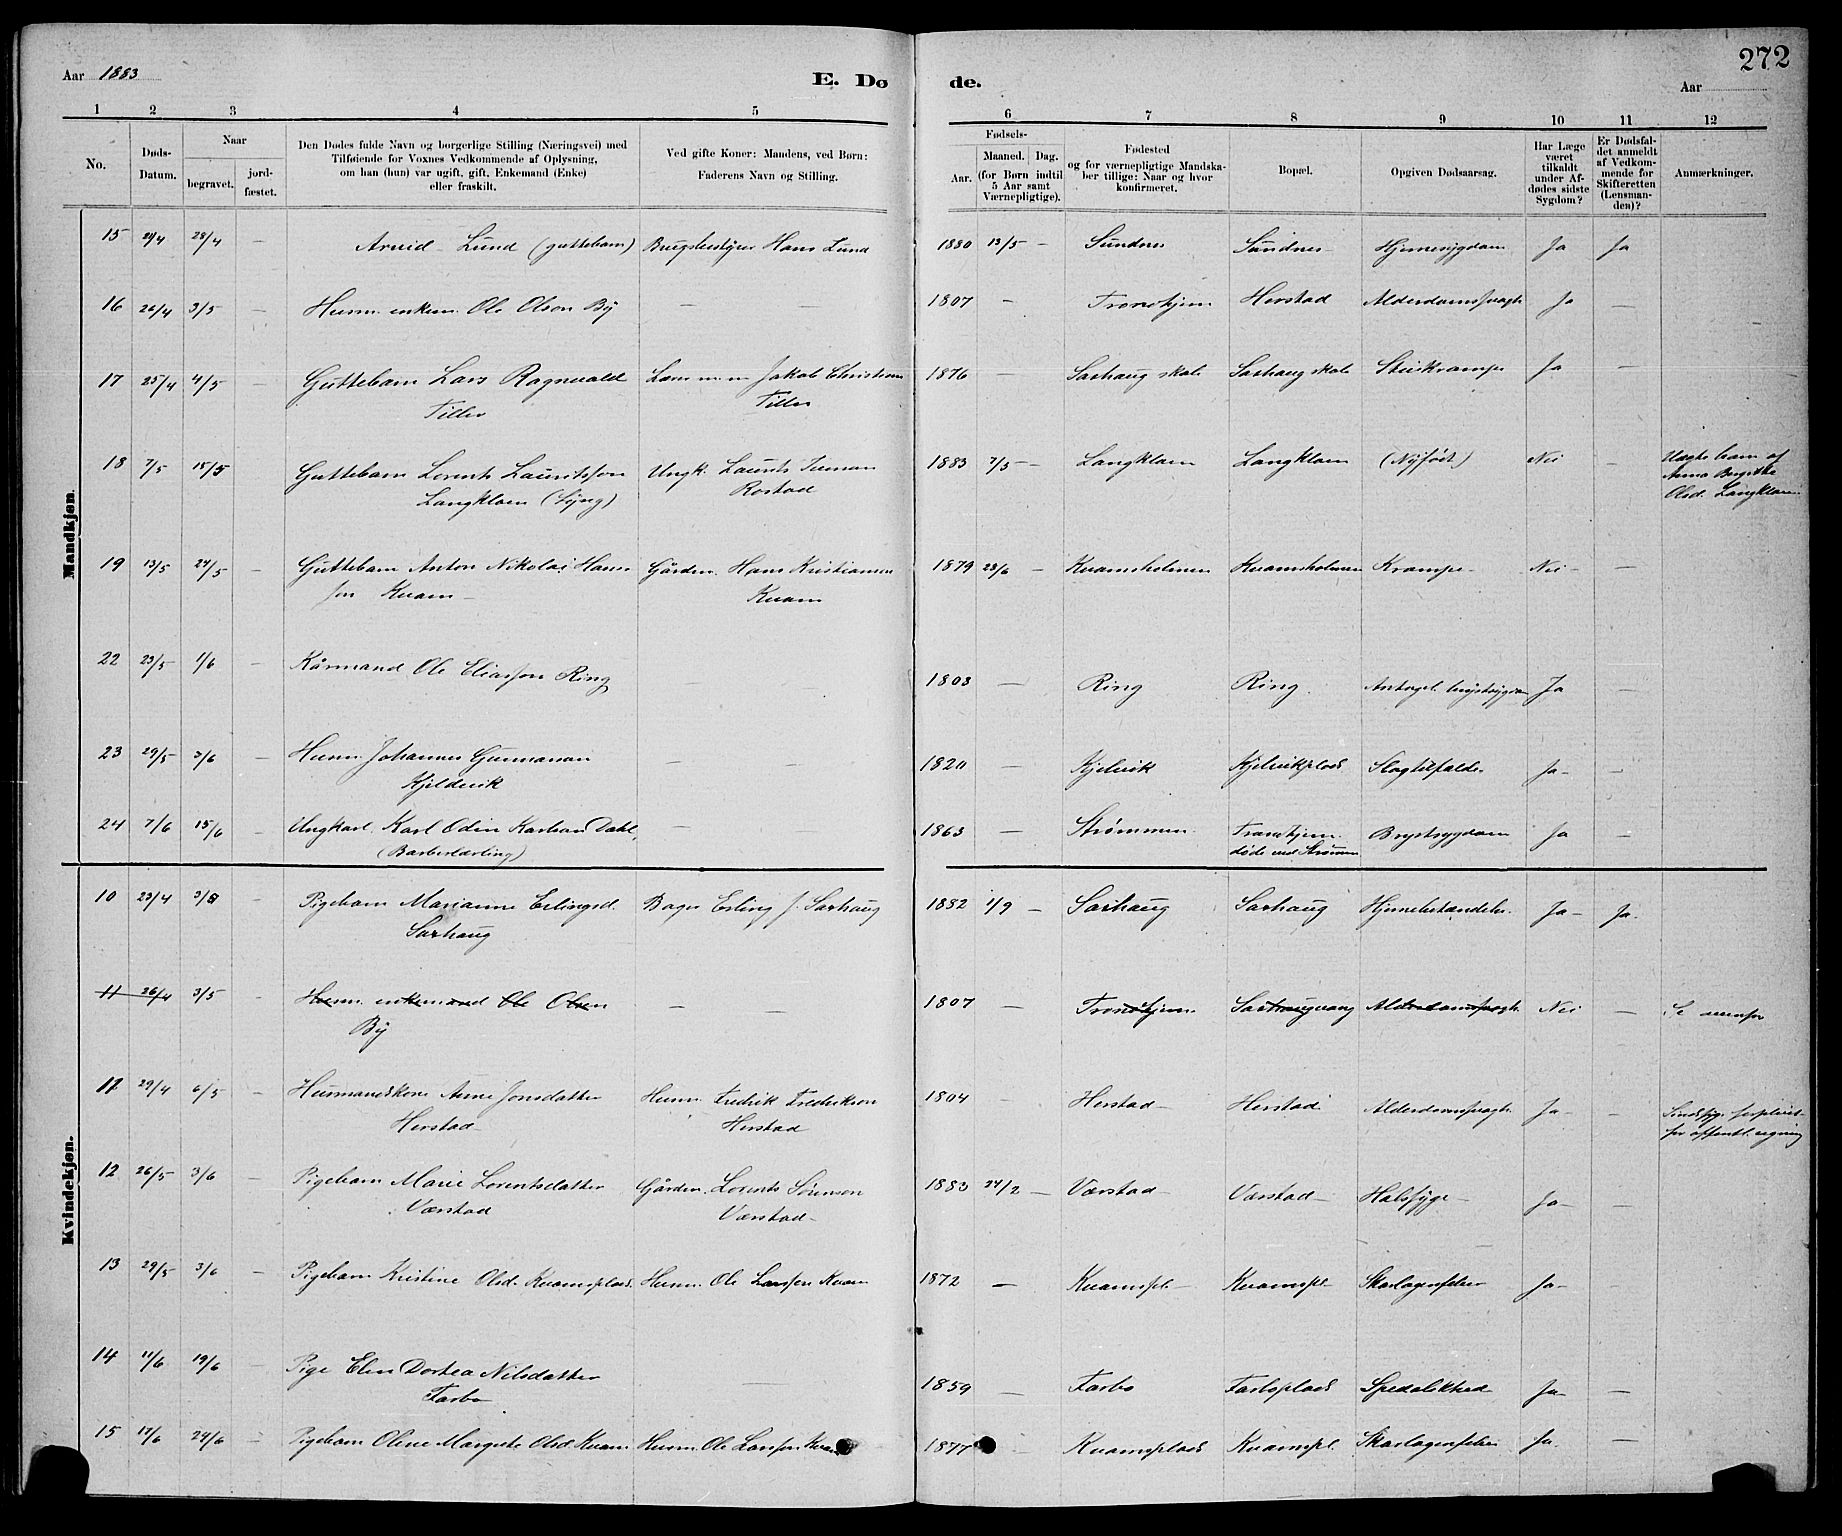 272
Aar 1883
E. Dø
de.
Aar
1 2 3 4 5 6 7 8 9 10 11 12
No.
Døds-
Datum.
Naar
begravet.
jord-
fæstet.
Den Dødes fulde Navn og borgerlige Stilling (Næringsvei) med
Tilføiende for Voxnes Vedkommende af Oplysning,
om han (hun) var ugift, gift, Enkemand (Enke)
eller fraskilt.
Ved gifte Koner: Mandens, ved Børn:
Faderens Navn og Stilling.
Fødsels-
Aar.
Maaned. Dag.
(for Børn indtil
5 Aar samt
Værnepligtige).
Fødested
og for værnepligtige Mandska-
ber tillige: Naar og hvor
konfirmeret.
Bopæl.
Opgiven Dødsaarsag.
Har Læge
været
tilkaldt
under Af-
dødes sidste
Sygdom?
Er Dødsfal-
det anmeldt
af Vedkom-
mende for
Skifteretten
(Lensman-
den)?
Anmærkninger.
Mandkjøn.
15 28/4 – Arvid Lund (guttebarn) Brugsbestyrer Hans Lund 1880 13/5 – Sundnes Sundnes Hjernesygdom Ja Ja
16 26/4 3/5 – Husm. enkem. Ole Olson By – – 1807 – Trondhjem Herstad Alderdomssvagh. Ja –
17 25/4 4/5 – Guttebarn Lars Ragnvald Jakob Christian 1876 – Saxhaug skole Saxhaug skole Stivkrampe Ja –
Tiller Tiller
18 7/5 15/5 Guttebarn Lorents Lauritsson Ungk. Laurits 1883 7/5 – Langklaen Langklaen (Nyfødt) Nei – Uægte barn af
Langklaen Rostad Anna
Olsd. Langklaen
19 13/5 24/5 – Guttebarn Anton Nikolai Hans Gården. Hans Kristiansen 1879 23/6 – Kvamsholmen Kvamsholmen Krampe Nei –
son Kvam Kvam
22 23/5 1/6 – Kårmand Ole Eliasson Ring – 1803 – Ring Ring. Antagel. brystsygdom Ja –
23 29/5 3/6 – Husm. Johannes Gunnarson – – 1820 – Kjelvik Kjelvikplads Slagtilfælde Ja –
Kjeldvik
24 7/6 15/6 – Ungkarl Karl Odin Karlson Dahl, – 1863 – Strømmen Trondhjem. Brystsygdom Ja –
(Barberlærling) døde ved Strømmen
Kvindekjøn.
10 23/4 3/5 – Pigebarn Marianne Erlingsd. Bager Erling J. Saxhaug 1882 1/9 – Saxhaug Saxhaug Hjernebetændelse. Ja – Ja.
Saxhaug
11 26/4 3/5 – Husm. enkemand Ole Olsen – – 1807 – Trondhjem Saxhaugvang Alderdomssvagh. Nei – Se
By
11 29/4 6/5 – Husmandskone Anne Jonsdatter Husm. Fredrik Fredrikson 1804 – Herstad Herstad Alderdomssvagh. Ja – – Sindssyg. forpleiet
Herstad Herstad for offentl. regning
12 26/5 3/6 – Pigebarn Marie Lorentsdatter Gården. Lorents Sörenson 1883 24/2 – Værstad Værstad Halssyge Ja – –
Værstad Værstad
13 29/5 3/6 – Pigebarn Kristine Olsd. Kvamsplads. Husm. Ole Larsson Kvam 1872 – Kvamspl. Kvamspl. Skarlagensfeber Ja – –
14 11/6 19/6 – Pige Elen Dortea Nilsdatter – 1859 – Tarbo Tarboplads Spedalskhed Ja – –
Tarbo
15 17/6 24/6 – Pigebarn Oline Margrete Olsd. Kvam Husm. Ole Larsson Kvam 1877 – Kvamsplads Kvamspl. Skarlagensfeber Ja. –